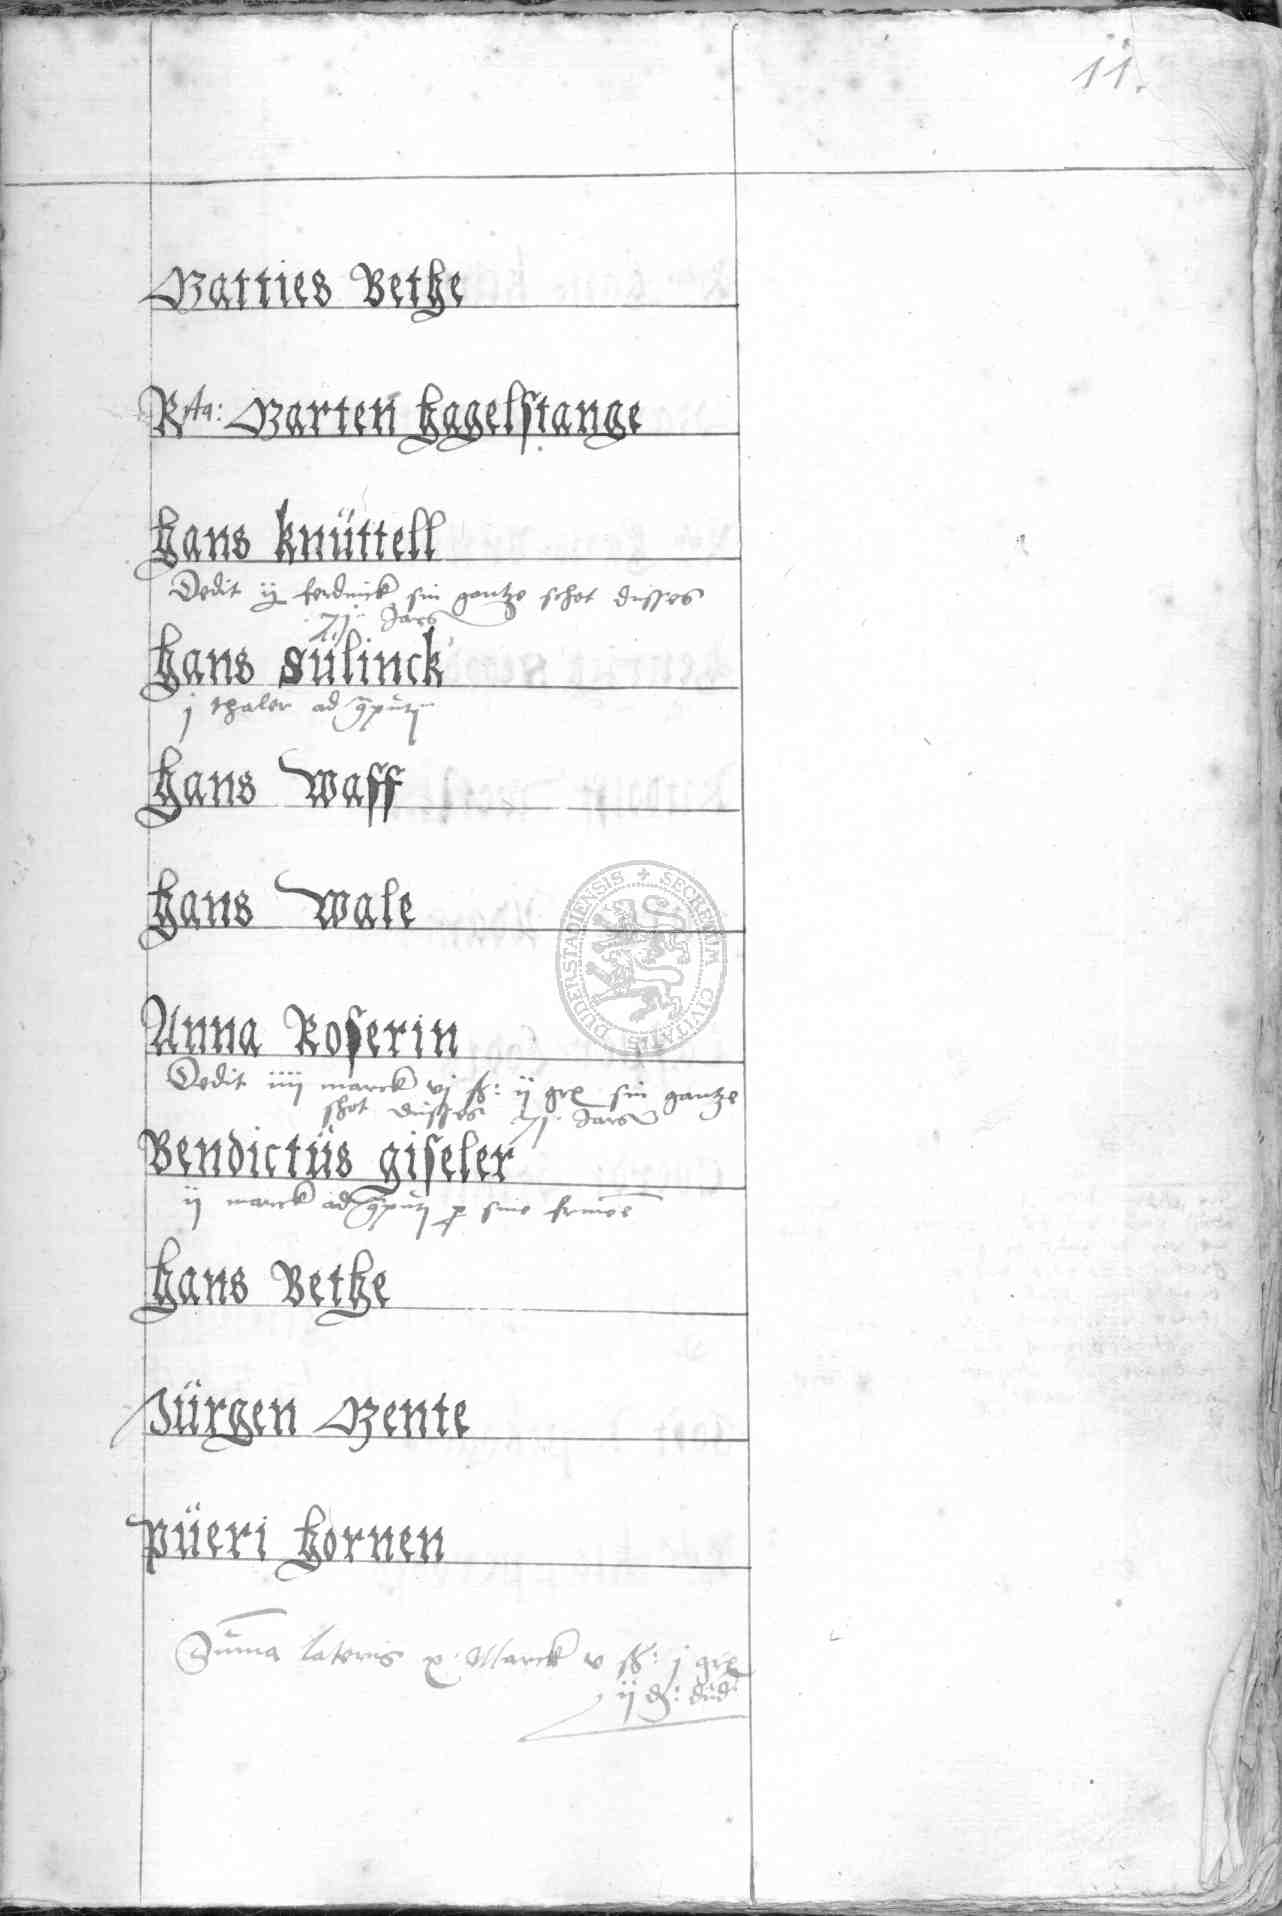 11.
Matties Bethe
Rta: Marten Hagelstange
Hans Knüttell
Dedit ij ferdinck sin gantze schot disses
71 Jars
Hans Sülinck
j thaler ad
Hans Waff
Hans Wale
Anna Roserin
Dedit iiij marck vj ß: ij grx sin gantze
shot disses 71 Jars
Bendictüs giseler
ij marck ad sine
Hans Bethe
Jürgen Mente
püeri Hornen
Sum̄a lateris x Marck v ß: j grx
ij d: düd
SECRETUM CIVITATIS DUDERSTADIENSIS